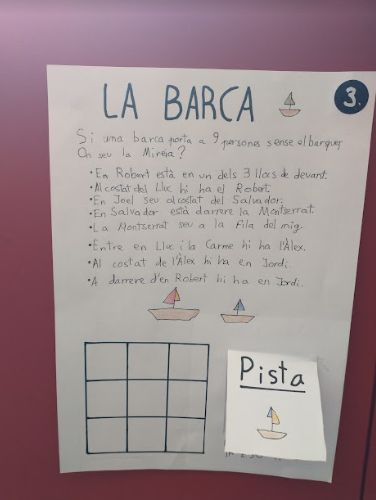 LA BARCA
3
Si una barca porta a 9 persones sense el barquer
On seu la Mireia?
• En Robert està en un dels 3 llocs de devant.
• Al costat del Lluc hi ha el Robert.
• En Joel seu al costat del Salvador.
• En Salvador està darrere la Montserrat.
• La Montserrat seu a la fila del mig.
• Entre en Lluc i la Carme hi ha l'Àlex.
• Al costat de l'Àlex hi ha en Jordi.
• A darrere d'en Robert hi ha en Jordi.
Pista